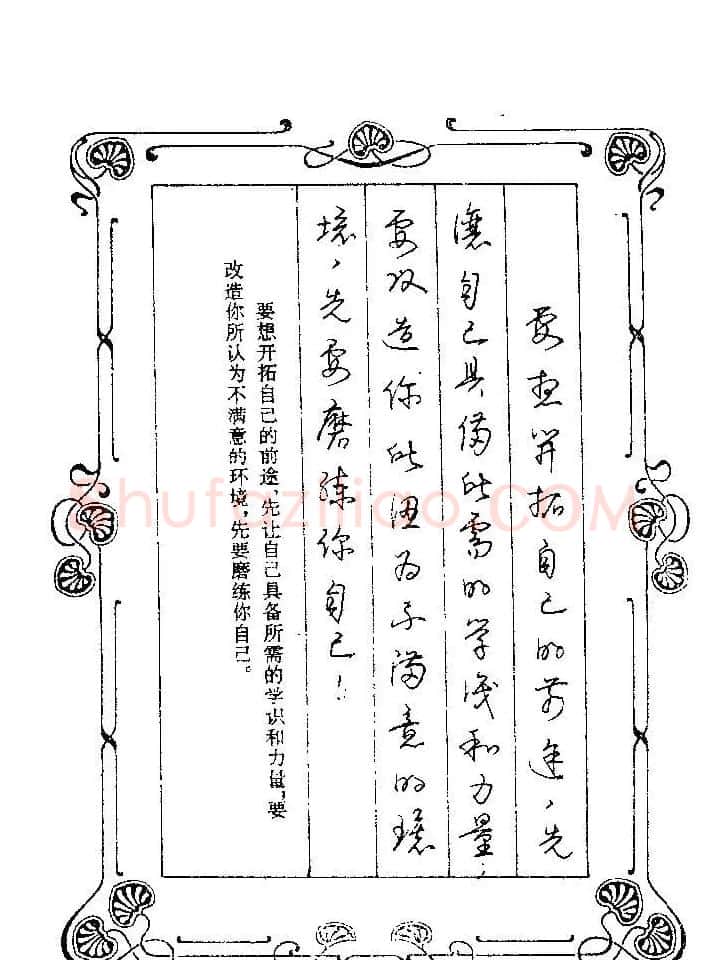 要想开拓自己的前途，先
让自己具备所需的学识和力量，
要改造你所认为不满意的环
境，先要磨练你自己！
要想开拓自己的前途，先让自己具备所需的学识和力量，要
改造你所认为不满意的环境，先要磨练你自己。
Shufaziliao.COM